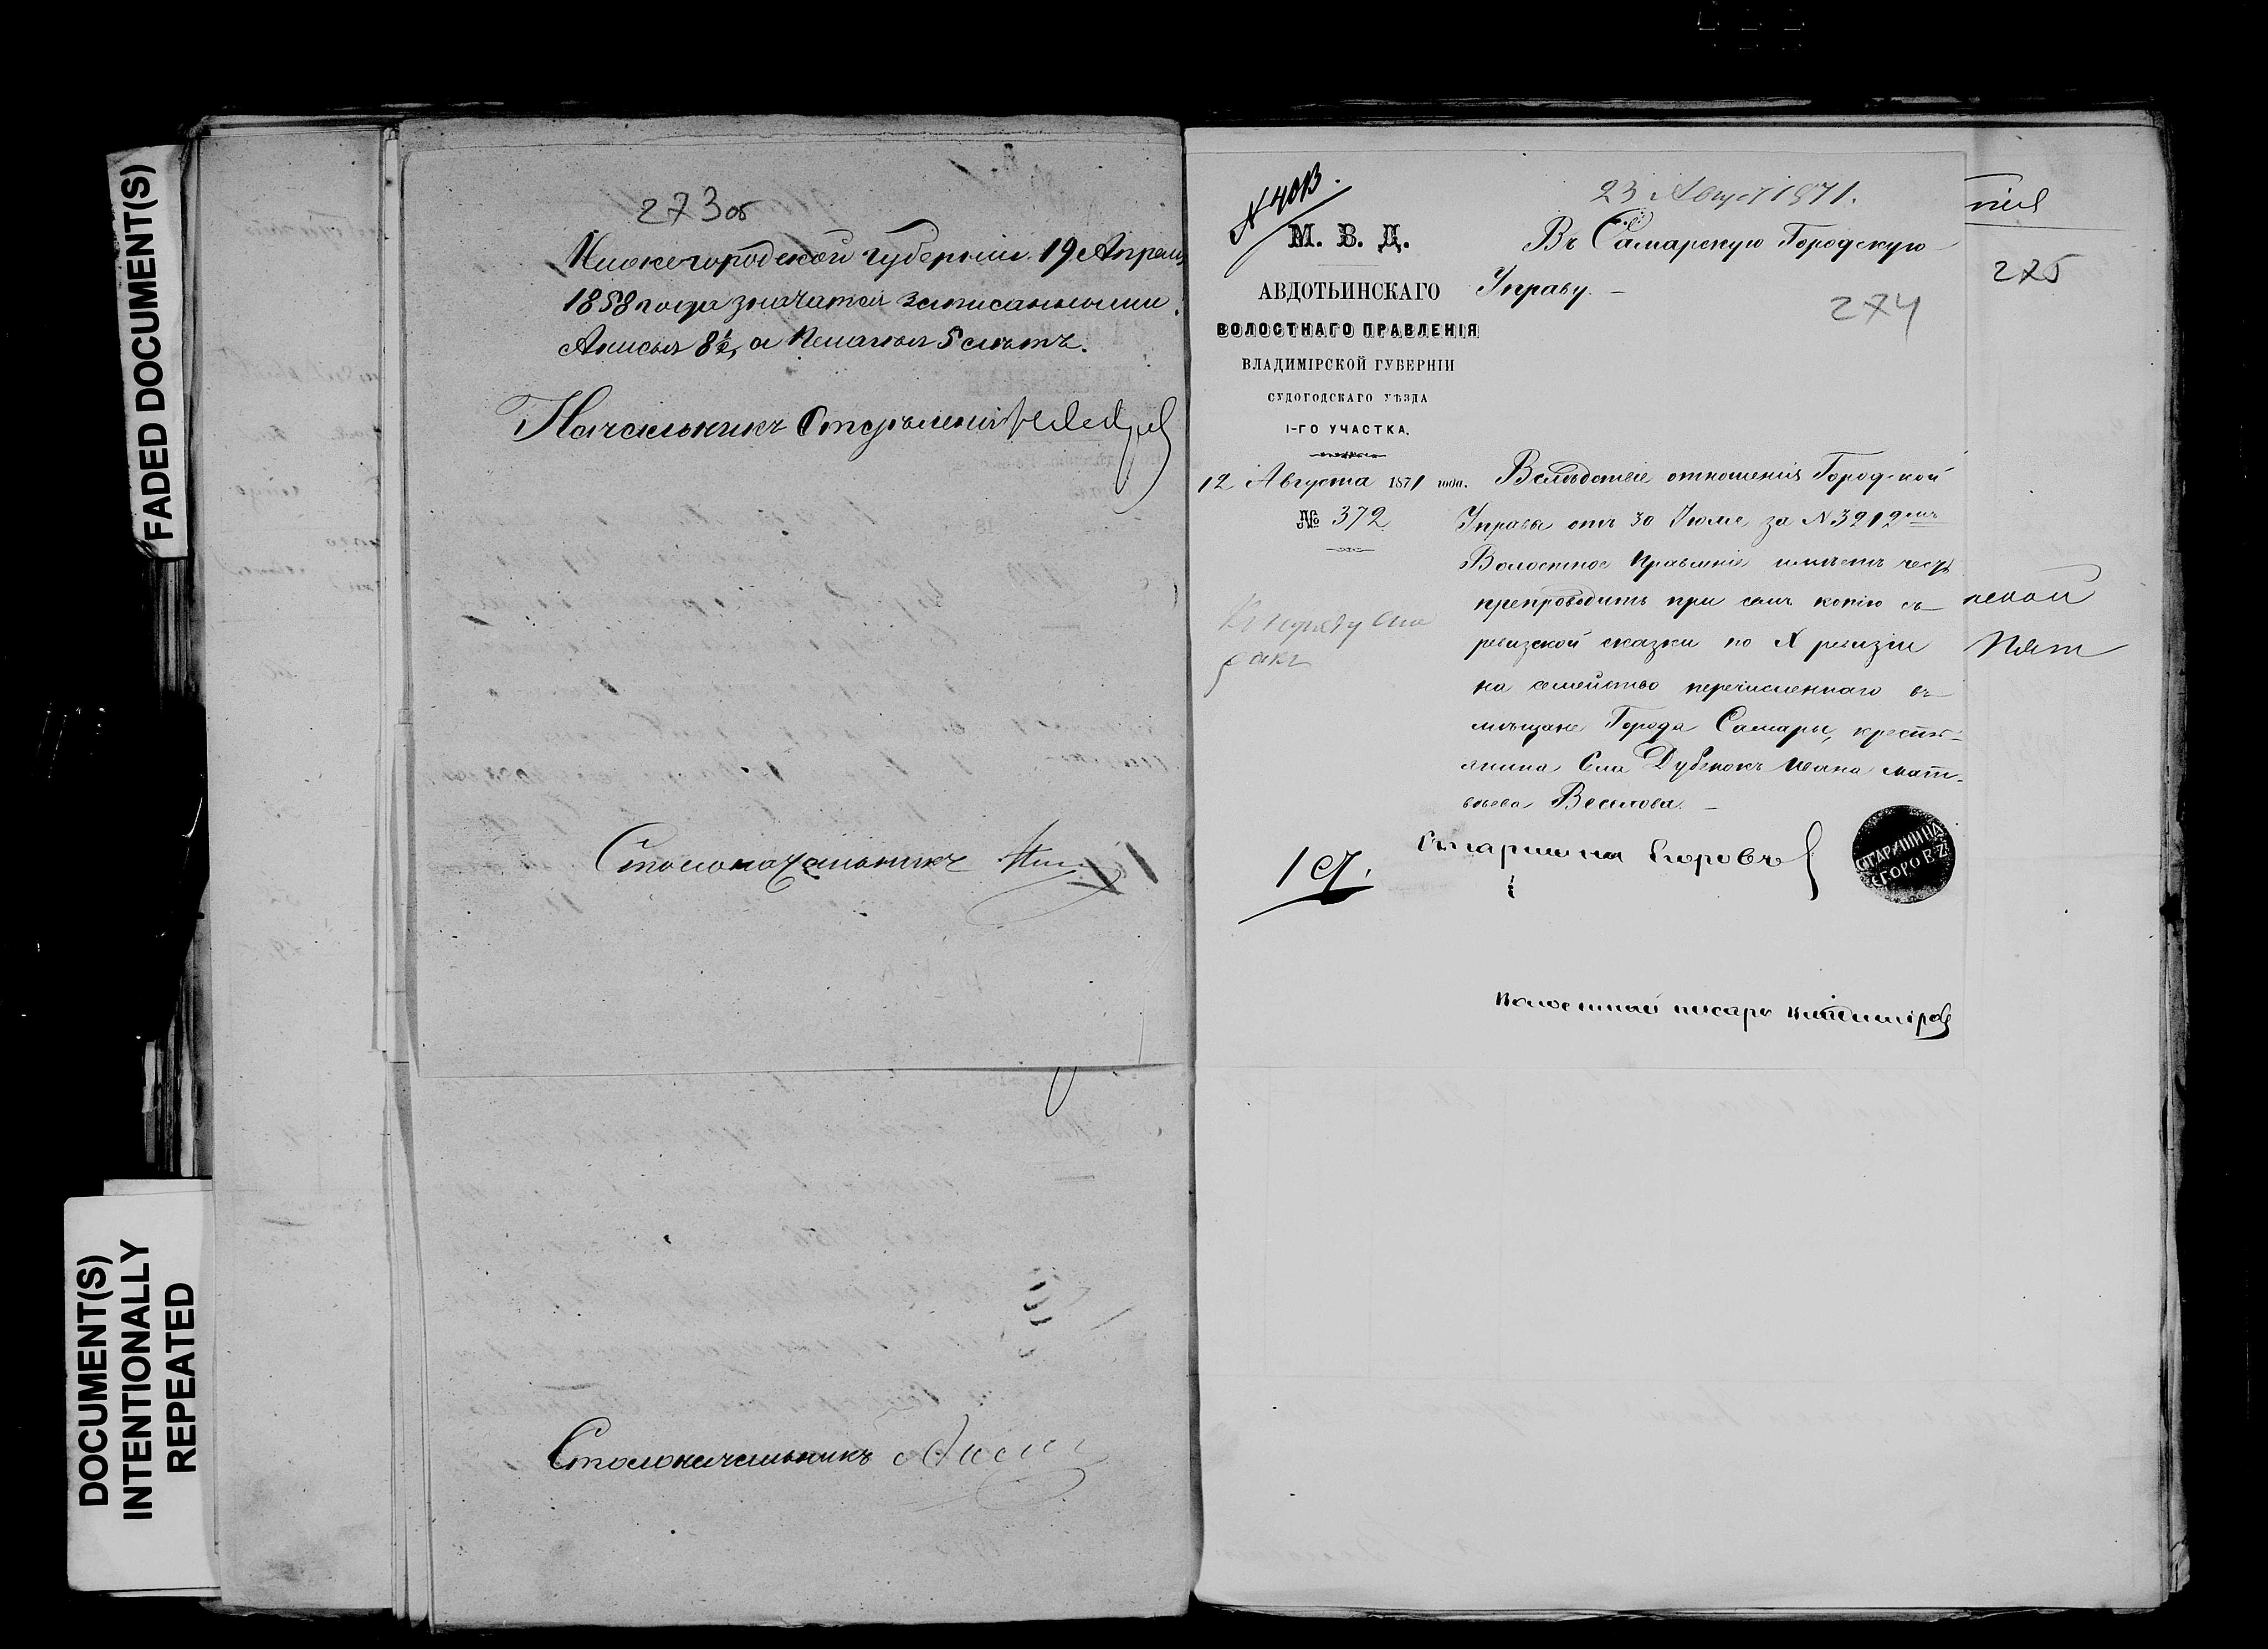 FADED DOCUMENT(S)
DOCUMENT(S)
INTENTIONALLY
REPEATED
273об
Нижегородской губерніи 19 Апрѣля
1858 года значатся записанными.
Анисья 8½, а Пелагея 5 лѣтъ.
Начальникъ Отдѣленія
Столоначальникъ
Столоначальникъ
N 4013.
М. В. Д.
АВДОТЬИНСКАГО
ВОЛОСТНАГО ПРАВЛЕНІЯ
ВЛАДИМІРСКОЙ ГУБЕРНІИ
СУДОГОДСКАГО УѢЗДА
1-ГО УЧАСТКА.
12 Августа 1871 года.
№ 372
23 Август 1871.
Въ Самарскую Городскую
Управу. —
274
Вслѣдствіе отношенія Городской
Управы отъ 30 Іюля за N 3912
Волостное Правленіе имѣетъ честь
препроводить при семъ копію съ
ревизской сказки по X ревизіи
на семейство перечисленнаго въ
мѣщане Города Самары, кресть-
янина Села Дубенокъ Ивана Мат-
вѣева Веселова. —
Старшина Егоровъ
СТАРШИНА
ЕГОРОВЪ
Волостной писарь
275